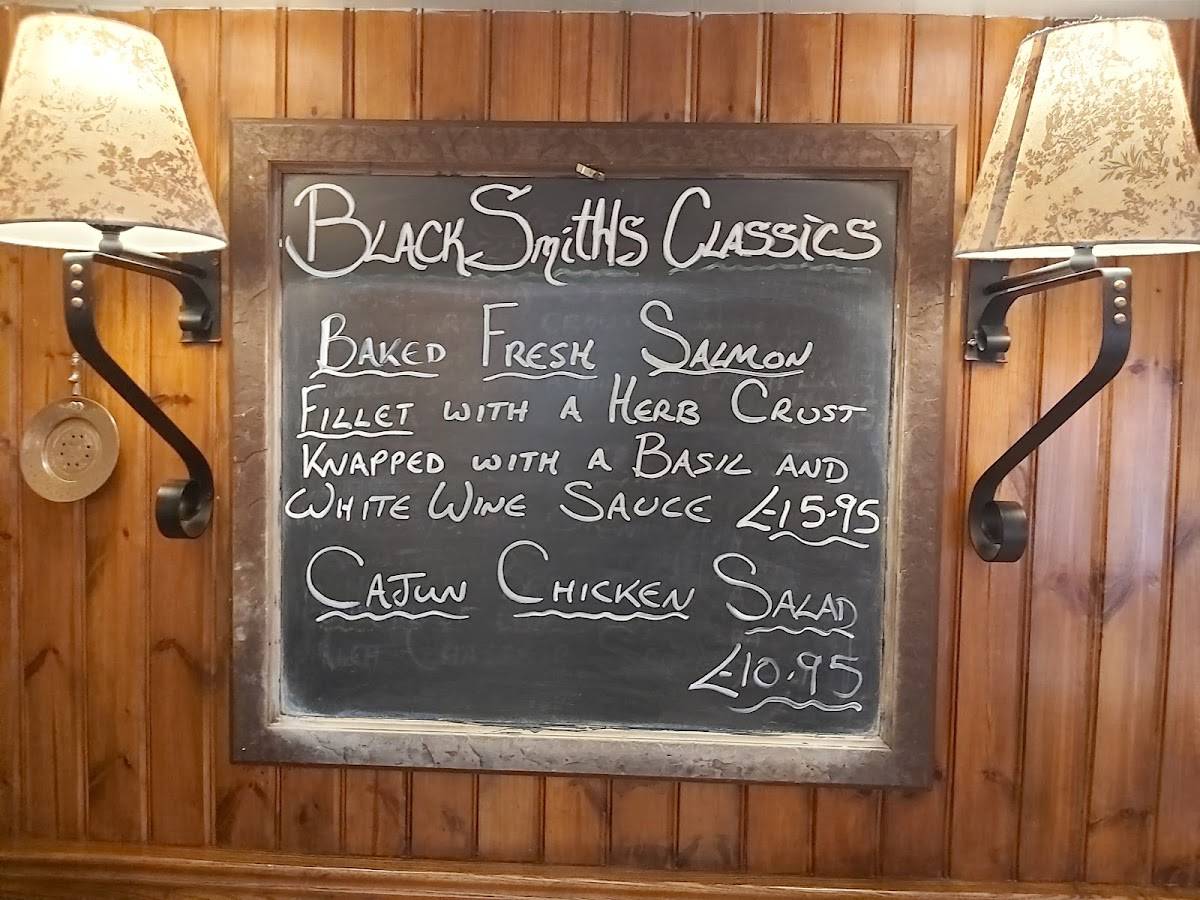 BLACKSmiTHS CLASSICS
BAKED FRESH SALMON
FILLET WITH A HERB CRUST
KNAPPED WITH A BASIL AND
WHITE WINE SAUCE £15.95
CAJUN CHICKEN SALAD
£10.95